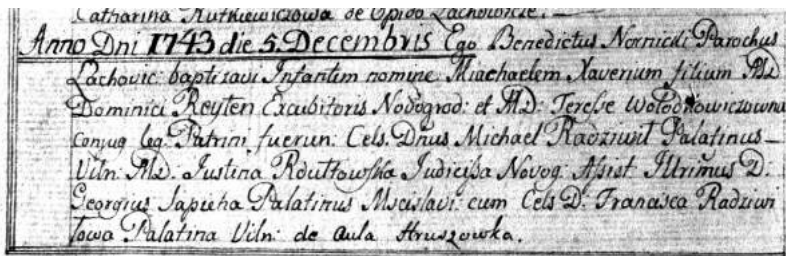 Catharina Rutkiewiczowa de Opido Lachowicze.
Anno Dni 1743 die 5. Decembris Ego Benedictus Nornicki Parochus
Lachovic: baptisavi Infantem nomine Miachaelem Xaverium filium MD
Dominici Reyten Excubitoris Novogrod: et MD: Teresse Wołodkowiczowna
Conjug leg: Patrini fuerun: Cels: Dnus Michael Radziwił Palatinus
Viln: MD: Justina Rdułtowska Judicissa Novog: Assist Illrimus D:
Georgius Sapieha Palatinus Mscislavi: cum Cels D: Francisca Radziwi
łowa Palatina Viln: de aula Hruszowka.